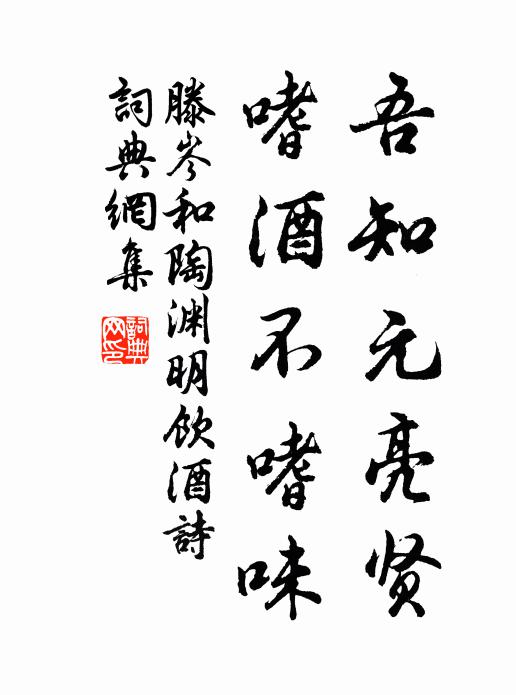 吾知元亮贤
嗜酒不嗜味
滕岑和陶渊明饮酒詩
詞典網集
詞典網印